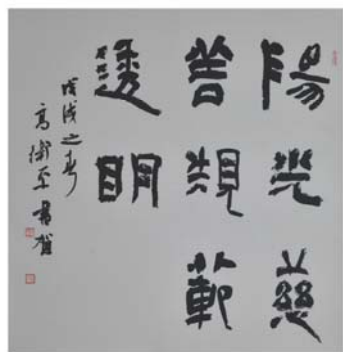 陽光慈
善規範
透明
戊戌之春
高衛平書賀